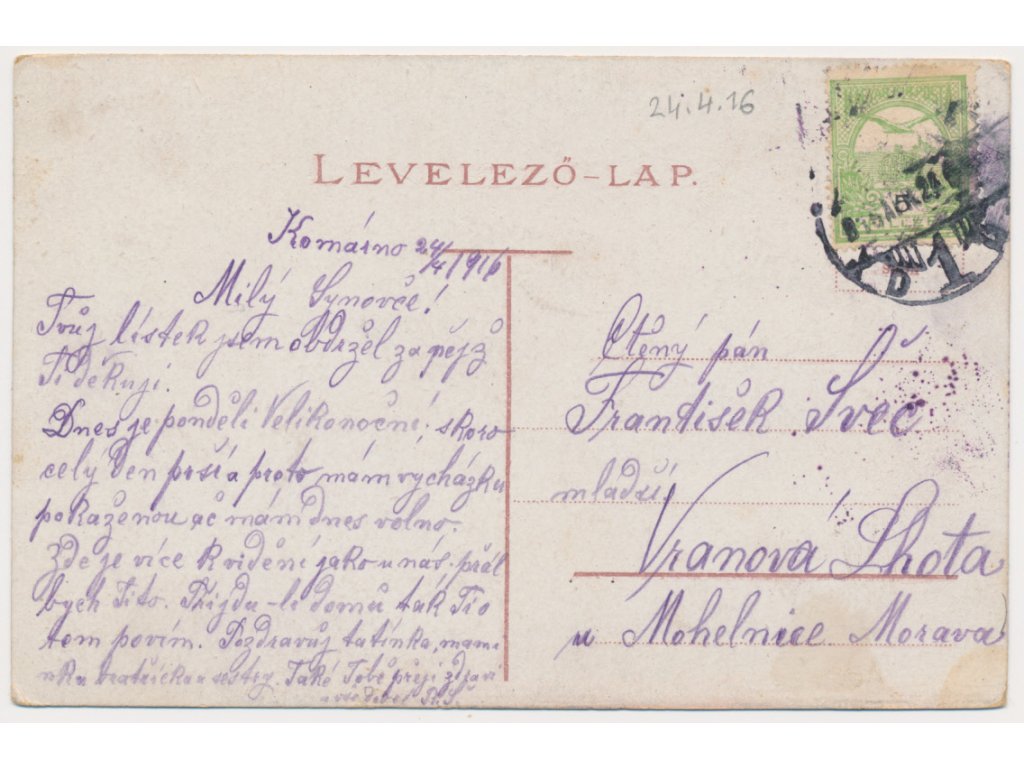 24.4.16
LEVELEZŐ-LAP.
Komárno 24/4 1916
Milý Synovče!
Tvůj lístek jsem obdržel za nějž
Ti děkuji.
Dnes je pondělí Velikonoční, skoro
celý den prší a proto mám vycházku
pokaženou ač mám dnes volno.
Zde je více k vidění jako u nás. přál
bych Ti to. Přijdu-li domů tak Ti o
tom povím. Pozdravůj tatínka, mami
nku bratříčka a sestry. Také Tobě přeji zdraví
Ctěný pán
František Švec
mladší
Vranová Lhota
u Mohelnice Morava